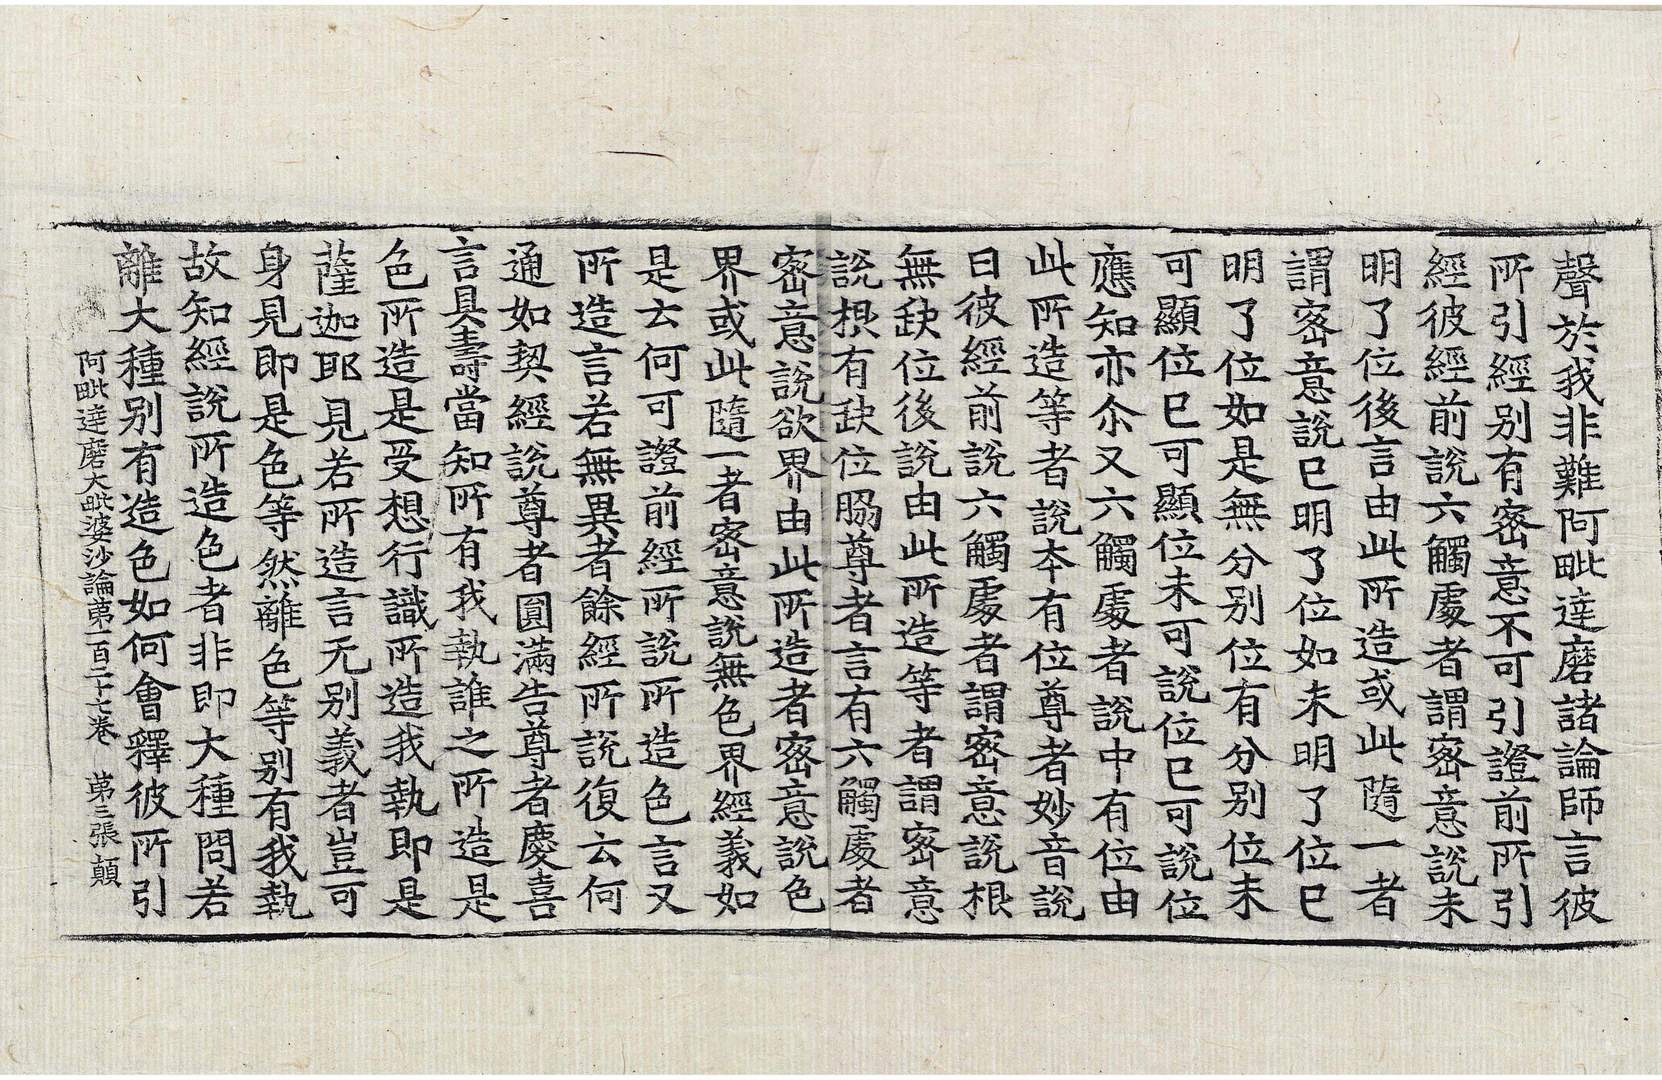 聲於我非難阿毗達磨諸論師言彼
所引經別有密意不可引證前所引
經彼經前說六觸處者謂密意說未
明了位後言由此所造或此隨一者
謂密意說已明了位如未明了位已
明了位如是無分別位有分別位未
可顯位已可顯位未可說位已可說位
應知亦尒又六觸處者說中有位由
此所造等者說本有位尊者妙音說
曰彼經前說六觸處者謂密意說根
無缺位後說由此所造等者謂密意
說根有缺位脇尊者言有六觸處者
密意說欲界由此所造者密意說色
界或此隨一者密意說無色界經義如
是云何可證前經所說所造色言又
所造言若無異者餘經所說復云何
通如契經說尊者圓滿告尊者慶喜
言具壽當知所有我執誰之所造是
色所造是受想行識所造我執即是
薩迦耶見若所造言无別義者豈可
身見即是色等然離色等別有我執
故知經說所造色者非即大種問若
離大種別有造色如何會釋彼所引
阿毗達磨大毗婆沙論第一百二十七卷　第三張　顛